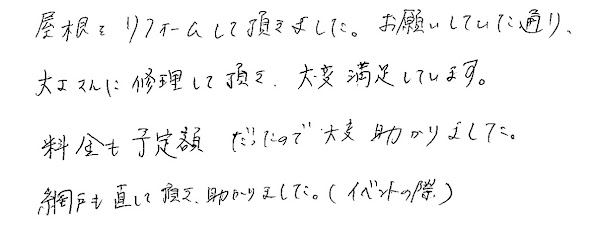 屋根をリフォームして頂きました。お願いしていた通り、
大工さんに修理して頂き、大変満足しています。
料金も予定額だったので大変助かりました。
網戸も直して頂き、助かりました。(イベントの際)